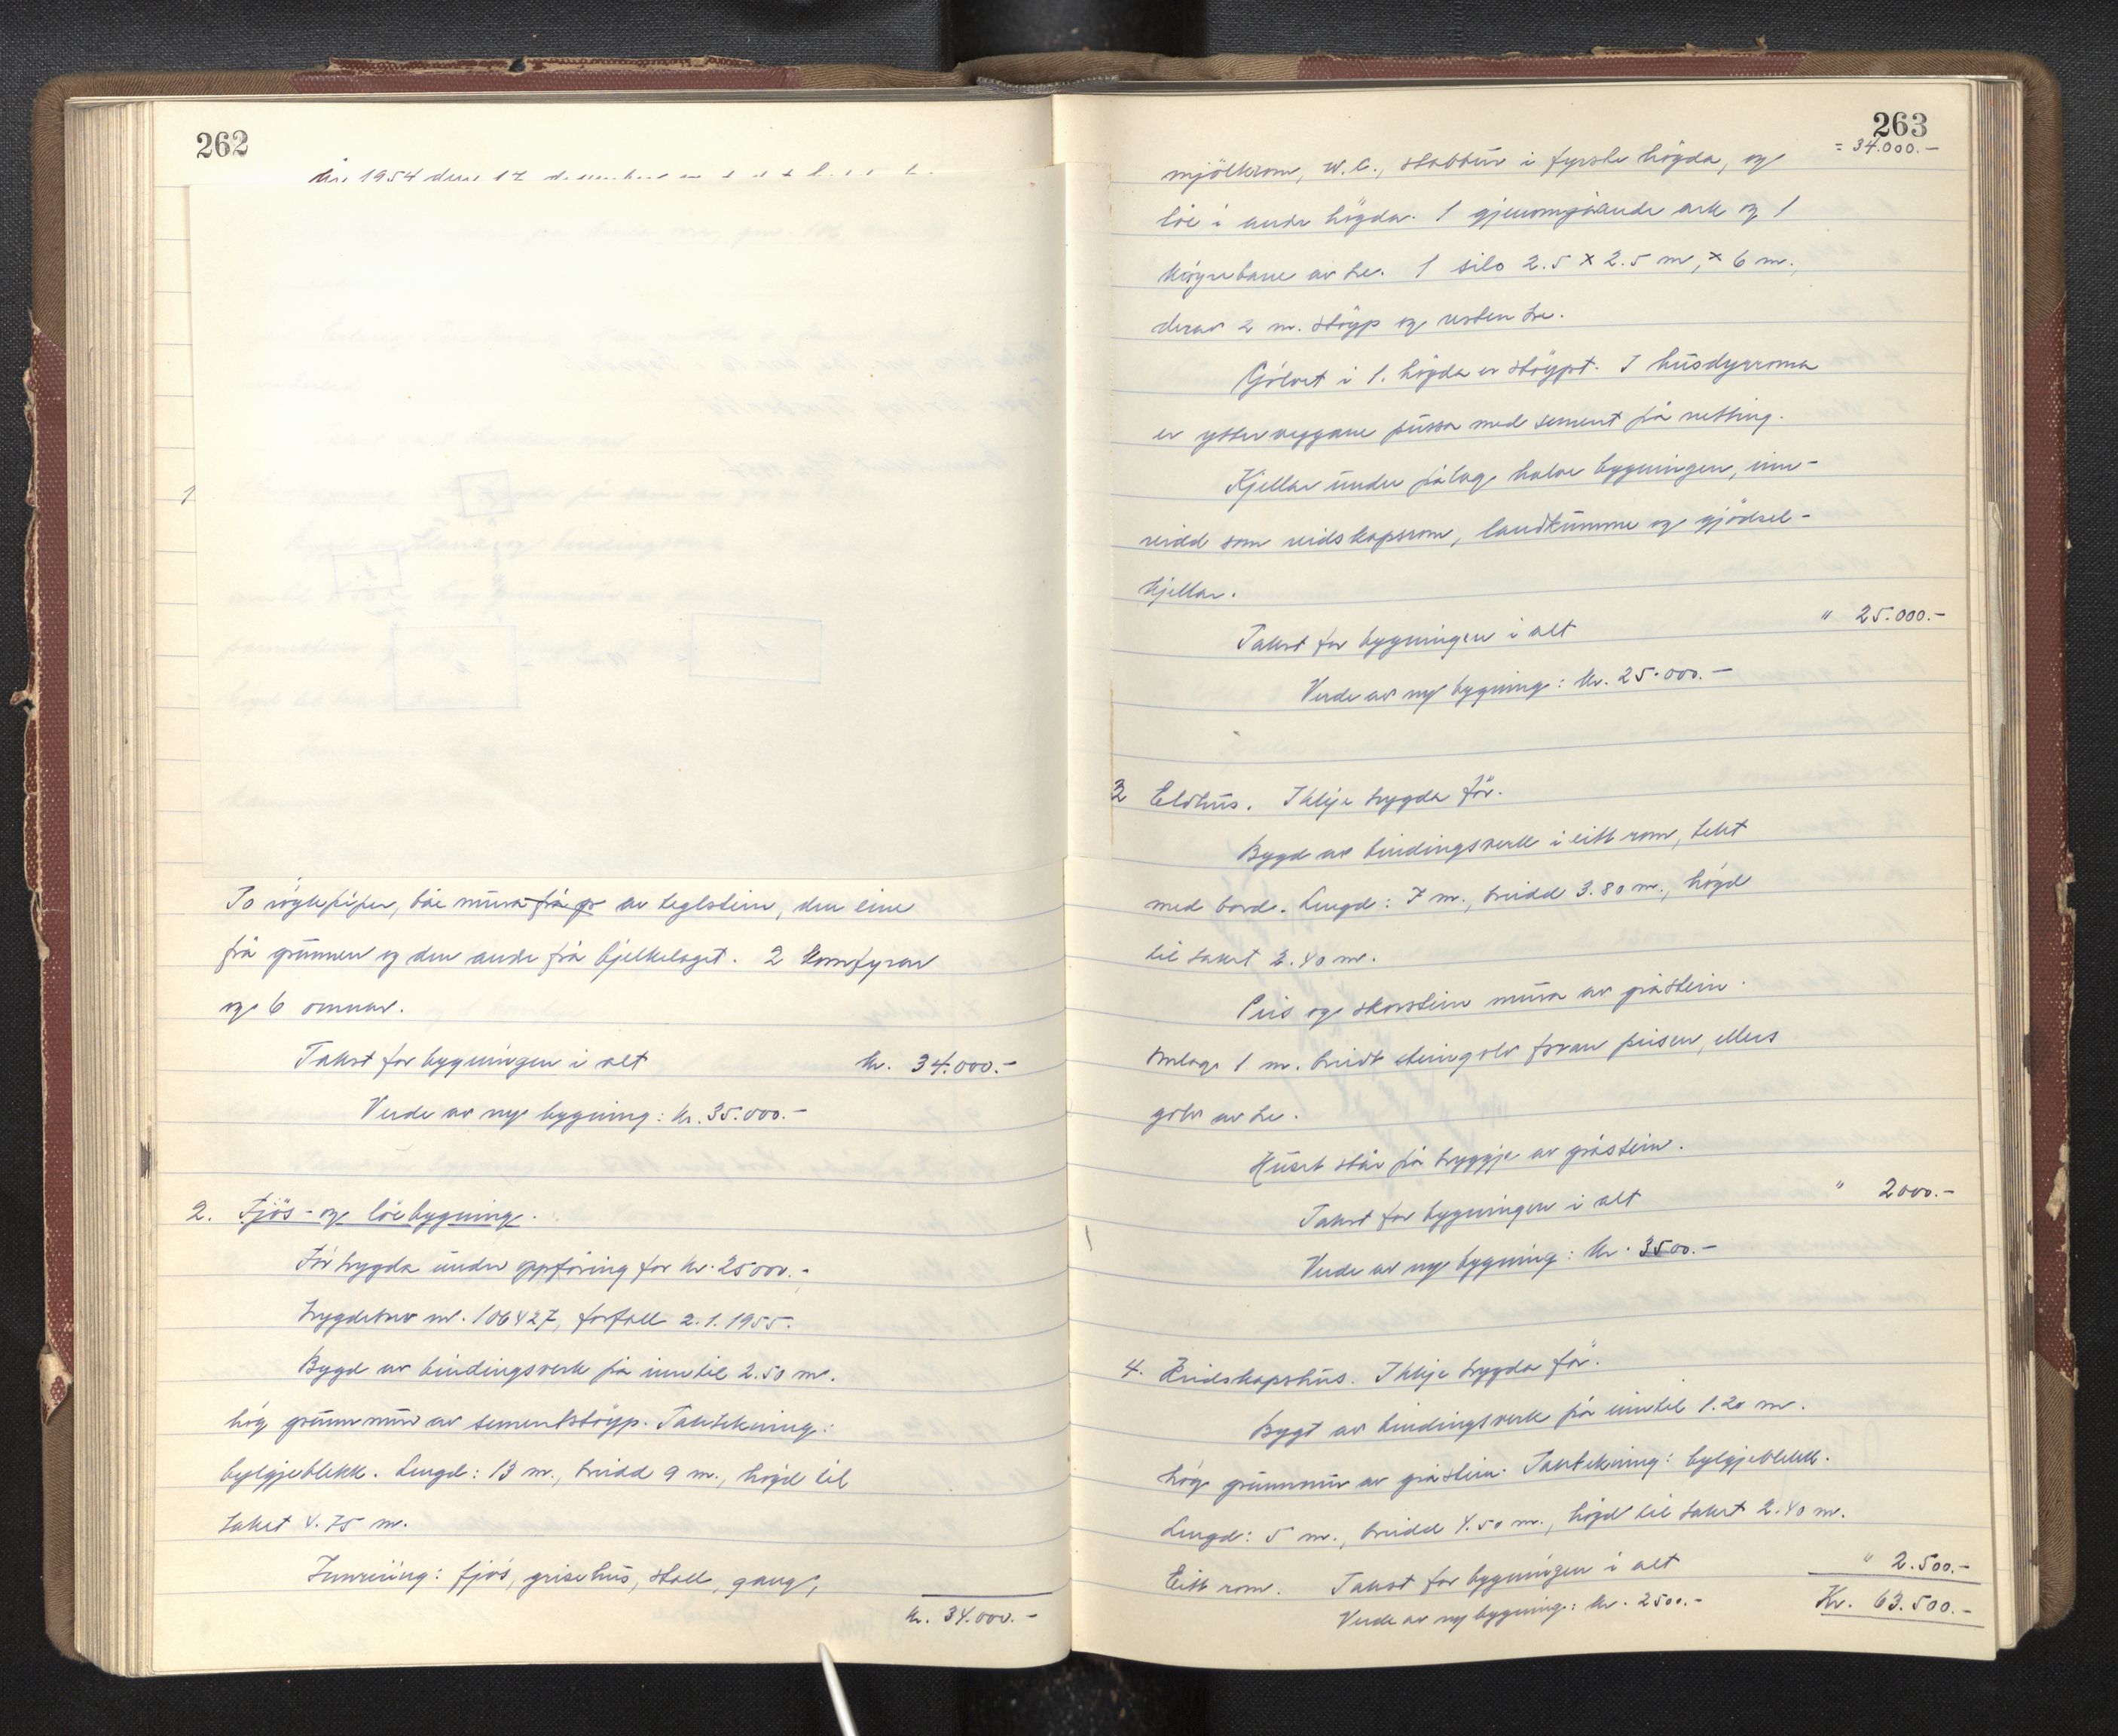 262
År 1954 den 17. desember
1
To røykpiper, båe mura frå gr av teglstein, den eine
frå grunnen og den andre frå bjelkelaget. 2 komfyrar
og 6 omnar.
Takst for bygningen i alt kr. 34.000.-
Verde av ny bygning: kr. 35.000.-
2. Fjös- og löebygning.
För trygda under oppföring for kr. 25000.-,
trygdebrev nr. 106427, forfall 2.1.1955.
Bygd av bindingsverk på inntil 2.50 m.
hög grunnmur av sementstöyp. Taktekning:
bylgjeblekk. Lengd: 13 m., breidd 9 m., högd til
taket 4.75 m.
Innreiing: fjös, grisehus, stall, gang,
kr. 34.000.-
263
= 34.000.-
mjölkrom, W.C., stabbur i fyrste högda, og
löe i andre högda. 1 gjenomgåande ark og 1
köyrebane av tre. 1 silo 2.5 x 2.5 m, x 6 m.,
derav 2 m. stöyp og resten tre.
Gólvet i 1. högda er stöypt. I husdyrroma
er ytterveggane pussa med sement på netting.
Kjellar under pålag halve bygningen, inn-
reidd som reidskapsrom, landkumme og gjödsel-
kjellar.
Takst for bygningen i alt " 25.000.-
Verde av ny bygning: kr. 25.000.-
3 Eldhus. Ikkje trygda för.
Bygd av bindingsverk i eitt rom, tekt
med bord. Lengd: 7 m., breidd 3.80 m., högd
til taket 2.40 m.
Peis og skorstein mura av gråstein.
Omlag 1 m. breidt steingolv foran peisen, ellers
golv av tre.
Huset står på tryggje av gråstein.
Takst for bygningen i alt " 2000.-
Verde av ny bygning: kr. 3500.-
4. Reidskapshus. Ikkje trygda för.
Bygt av bindingsverk på inntil 1.20 m.
hög grunnmur av gråstein. Taktekning: bylgjeblekk.
Lengd: 5 m., breidd 4.50 m., högd til taket 2.40 m.
Eitt rom. Takst for bygningen i alt " 2.500.-
Verde av ny bygning: kr. 2500.- Kr. 63.500.-